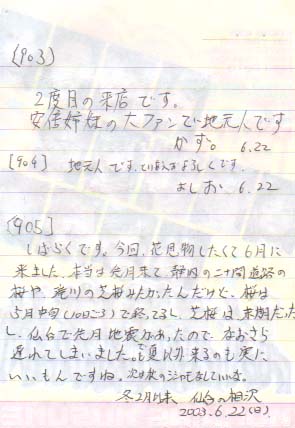 (903)
2度目の来店です。
安倍姉妹の大ファンで地元人です
かず。 6.22
[904] 地元人です、よろしくです。
よしお 6.22
[905]
しばらくです。今回、花見物したくて6月に
来ました。本当は先月来て静内の二十間道路の
桜や、滝川の芝桜みたかったんだけど、桜は
5月中旬(10日ごろ)で終了し、芝桜は末期だった
し、仙台で先月地震があったので、なおさら
遅れてしまいました。でも夏以外来るのも実に
いいもんですね。次は秋のジャもなしていいな。
冬2月以来 仙台の相沢
2003.6.22(日)